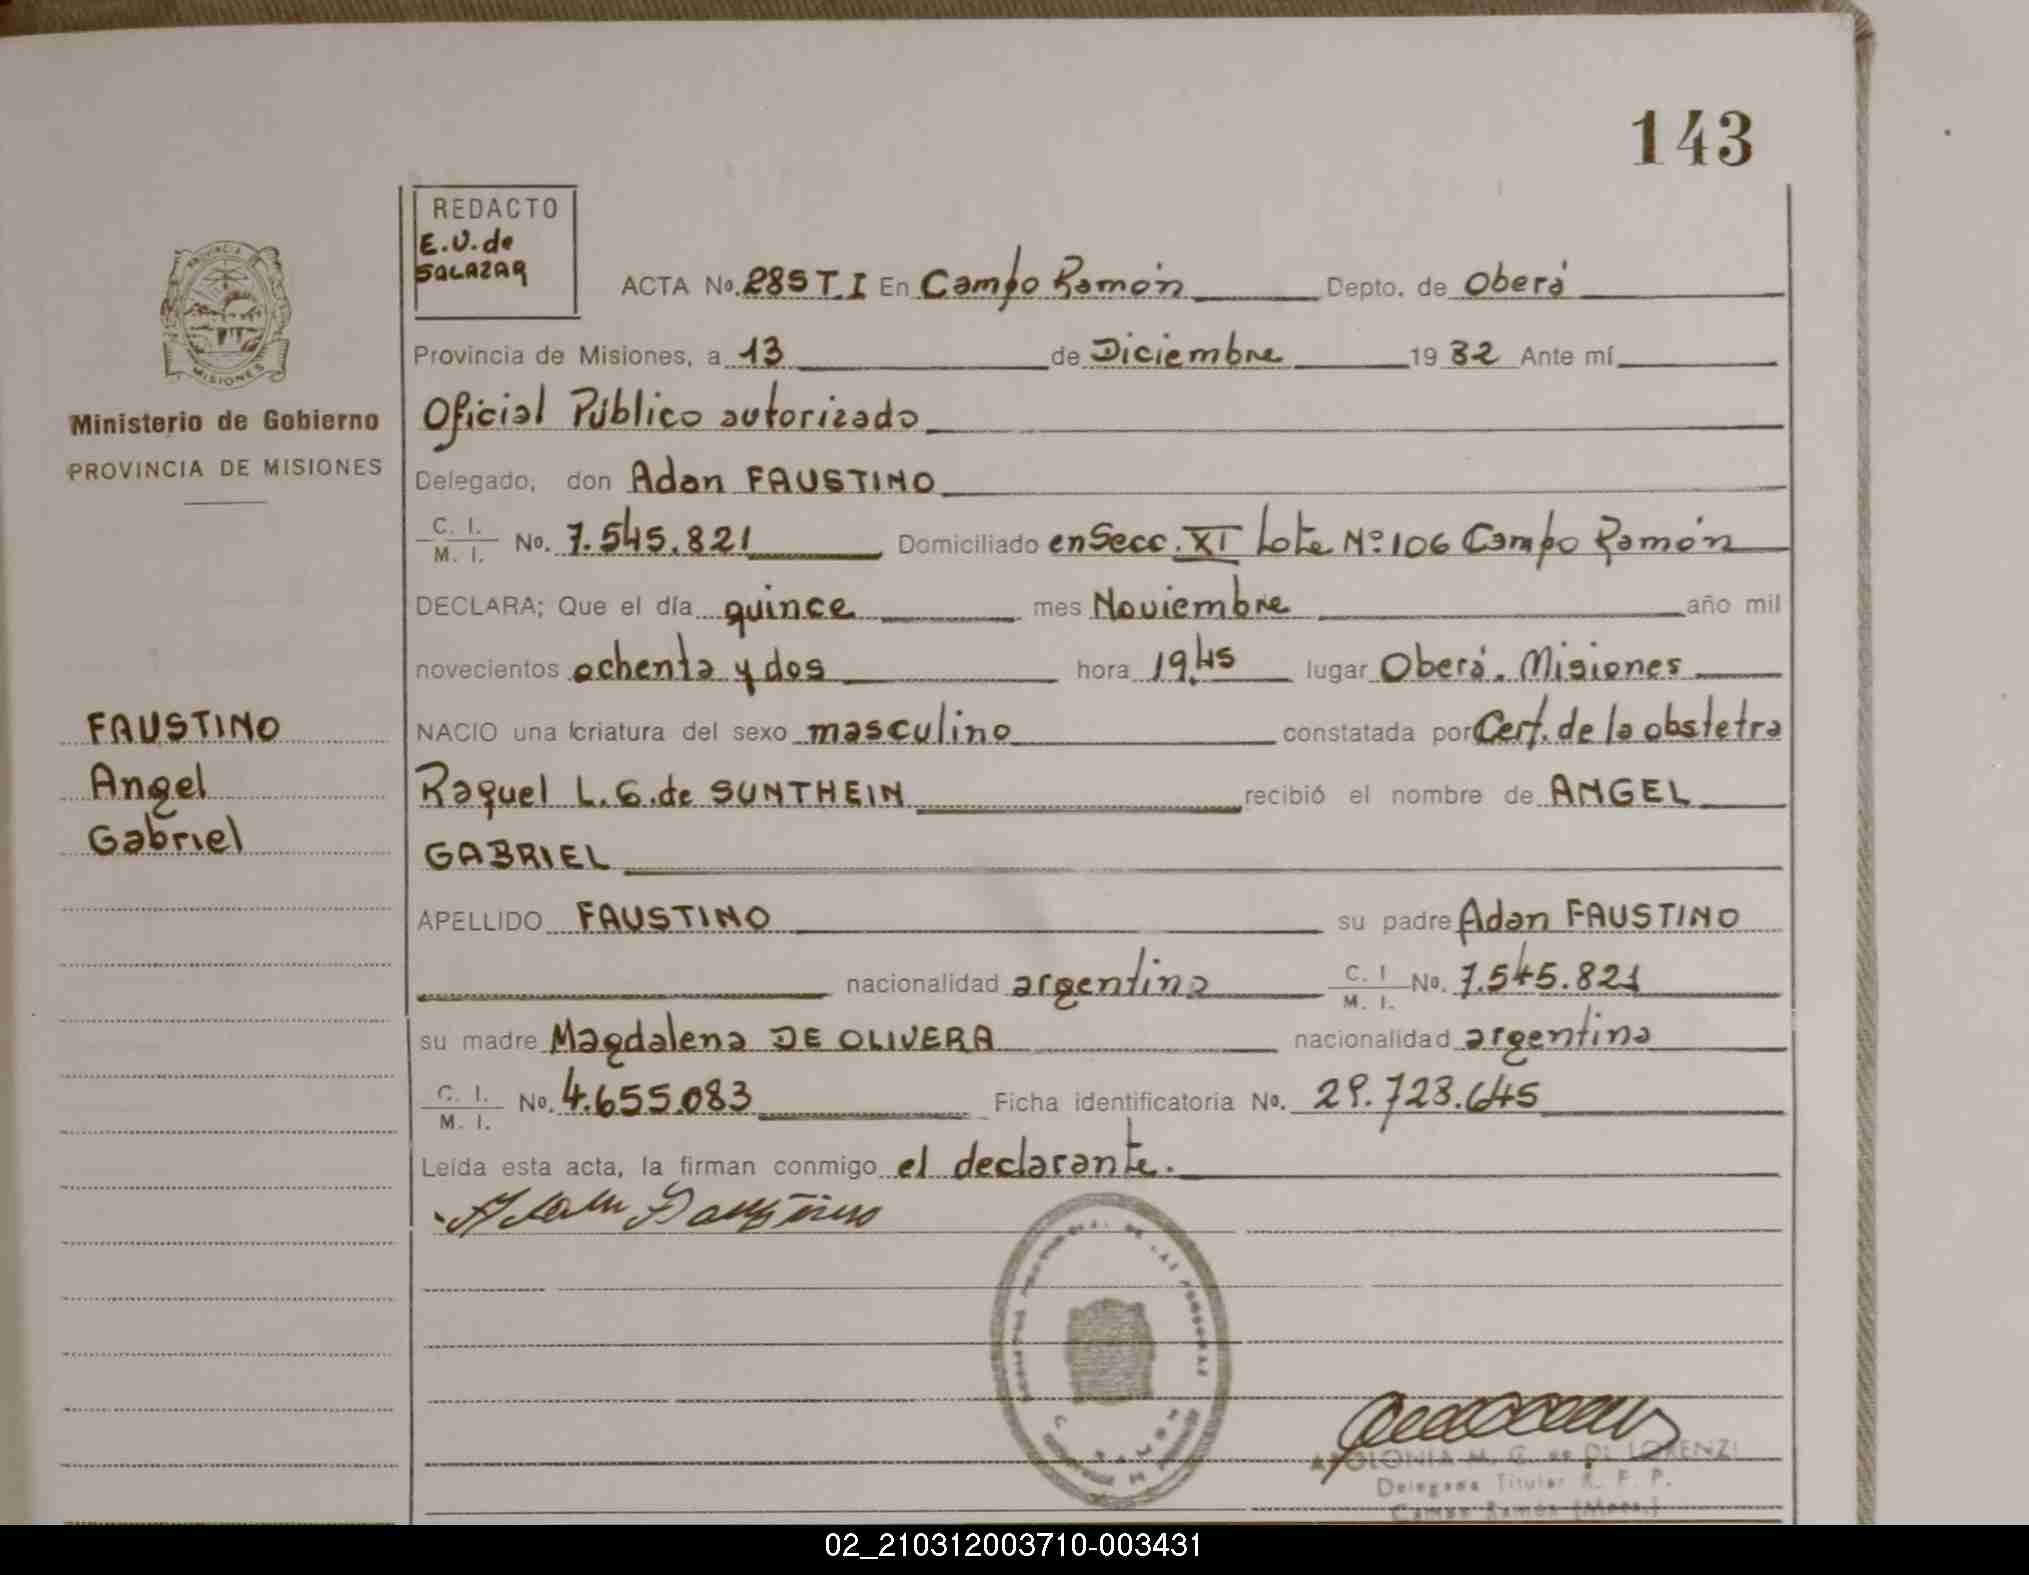 143
REDACTO
E.V. de
SALAZAR
ACTA No. 285 T. I En Campo Ramón Depto. de Oberá
Provincia de Misiones, a 13 de Diciembre 1982 Ante mí
Oficial Público autorizado
Delegado, don Adan FAUSTINO
C. I.
M. I. No. 7.545.821 Domiciliado en Secc. XI Lote Nº 106 Campo Ramón
DECLARA; Que el día quince mes Noviembre año mil
novecientos ochenta y dos hora 19.45 lugar Oberá. Misiones
NACIO una criatura del sexo masculino constatada por Cert. de la obstetra
Raquel L. G. de SUNTHEIN recibió el nombre de ANGEL
GABRIEL
APELLIDO FAUSTINO su padre Adan FAUSTINO
nacionalidad argentina C. I
M. I. No. 7.545.821
su madre Magdalena DE OLIVERA nacionalidad argentina
C. I.
M. I. No. 4.655.083 Ficha identificatoria No. 29.723.645
Leída esta acta, la firman conmigo el declarante.
Adan Faustino
APOLONIA M. C. de DI LORENZI
Delegada Titular R. P. P.
Campo Ramón (Mnes.)
PROVINCIA
MISIONES
Ministerio de Gobierno
PROVINCIA DE MISIONES
FAUSTINO
Angel
Gabriel
02_210312003710-003431